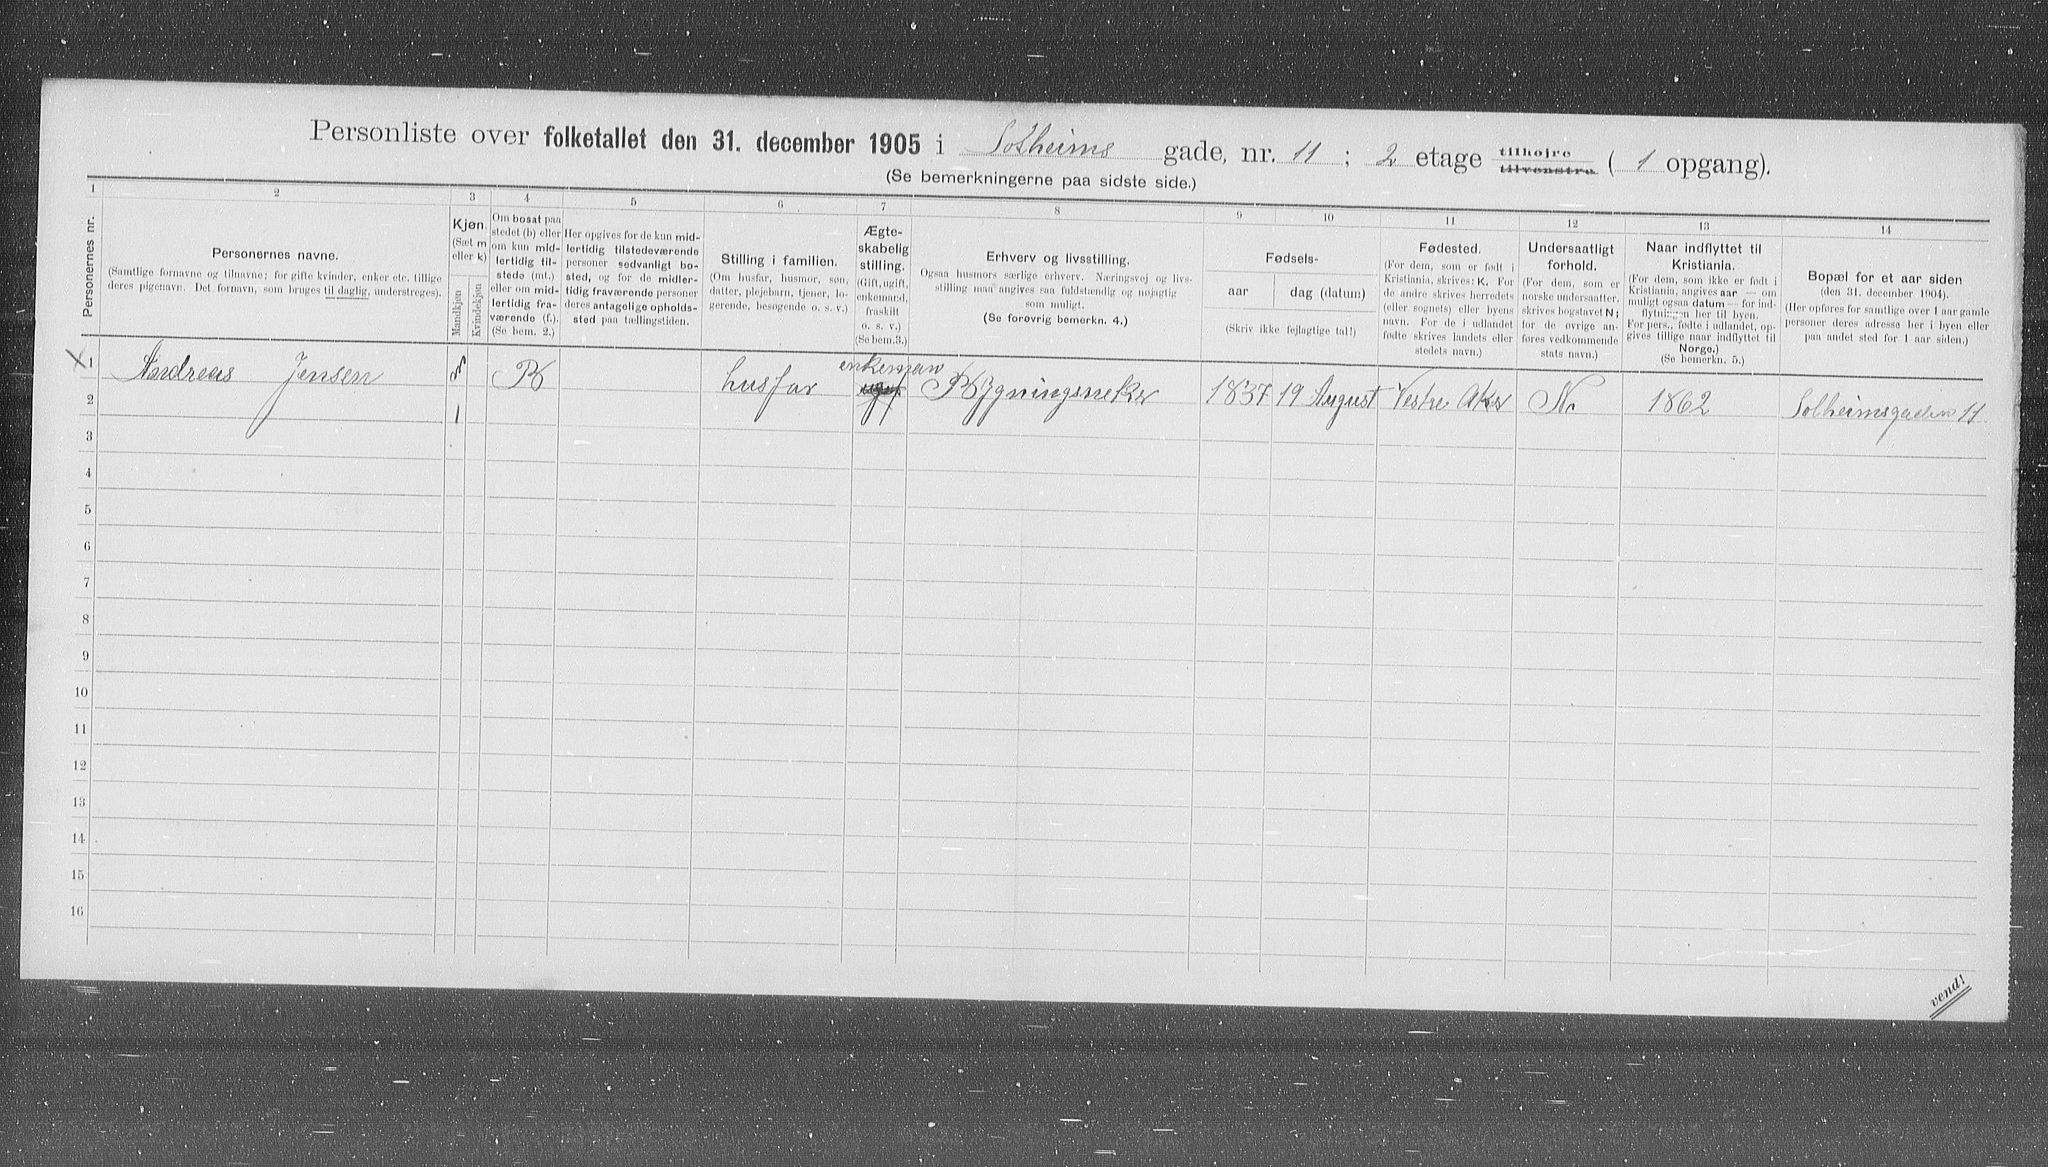 Personliste over folketallet den 31. december 1905 i Solheims gade, nr. 11 ; 2 etage tilhøjre tilvenstre ( 1 opgang).
(Se bemerkningerne paa sidste side.)
1 2 3 4 5 6 7 8 9 10 11 12 13 14
Personernes nr.
Personernes navne.
(Samtlige fornavne og tilnavne; for gifte kvinder, enker etc. tillige
deres pigenavn. Det fornavn, som bruges til daglig, understreges).
Kjøn.
(Sæt m
eller k)
Mandkjøn
Kvindekjøn
Om bosat paa
stedet (b) eller
om kun mid-
lertidig til-
stede (mt.)
eller om mid-
lertidig fra-
værende (f.).
(Se bem. 2.)
Her opgives for de kun mid-
lertidig tilstedeværende
personer sedvanligt bo-
sted, og for de midler-
tidig fraværende personer
deres antagelige opholds-
sted paa tællingstiden.
Stilling i familien.
(Om husfar, husmor, søn,
datter, plejebarn, tjener, lo-
gerende, besøgende o. s. v.)
Ægte-
skabelig
stilling.
(Gift, ugift,
enkemand,
fraskilt
o. s. v.)
(Se bem.3.)
Erhverv og livsstilling.
Ogsaa husmors særlige erhverv. Næringsvej og livs-
stilling maa angives saa fuldstændig og nøjagtig
som muligt.
(Se forøvrig bemerkn. 4.)
Fødsels-
aar
dag (datum)
(Skriv ikke fejlagtige tal!)
Fødested.
(For dem, som er født i
Kristiania, skrives: K. For
de andre skrives herredets
(eller sognets) eller byens
navn. For de i udlandet
fødte skrives landets eller
stedets navn.)
Undersaatligt
forhold.
(For dem, som er
norske undersaatter,
skrives bogstavet N;
for de øvrige an-
føres vedkommende
stats navn.)
Naar indflyttet til
Kristiania.
(For dem, som ikke er født i
Kristiania, angives aar — om
muligt ogsaa datum — for ind-
flytningen her til byen.
For pers., fødte i udlandet, op-
gives tillige naar indflyttet til
Norge.)
(Se bemerkn. 5.)
Bopæl for et aar siden
(den 31. december 1904).
(Her opføres for samtlige over 1 aar gamle
personer deres adresse her i byen eller
paa andet sted for 1 aar siden.)
enkeman
1 Andreas Jensen m B husfar Bygningsneker 1837 19 August Vestre Aker N. 1862 Solheimsgaden 11
2 1
3
4
5
6
7
8
9
10
11
12
13
14
15
16
vend!